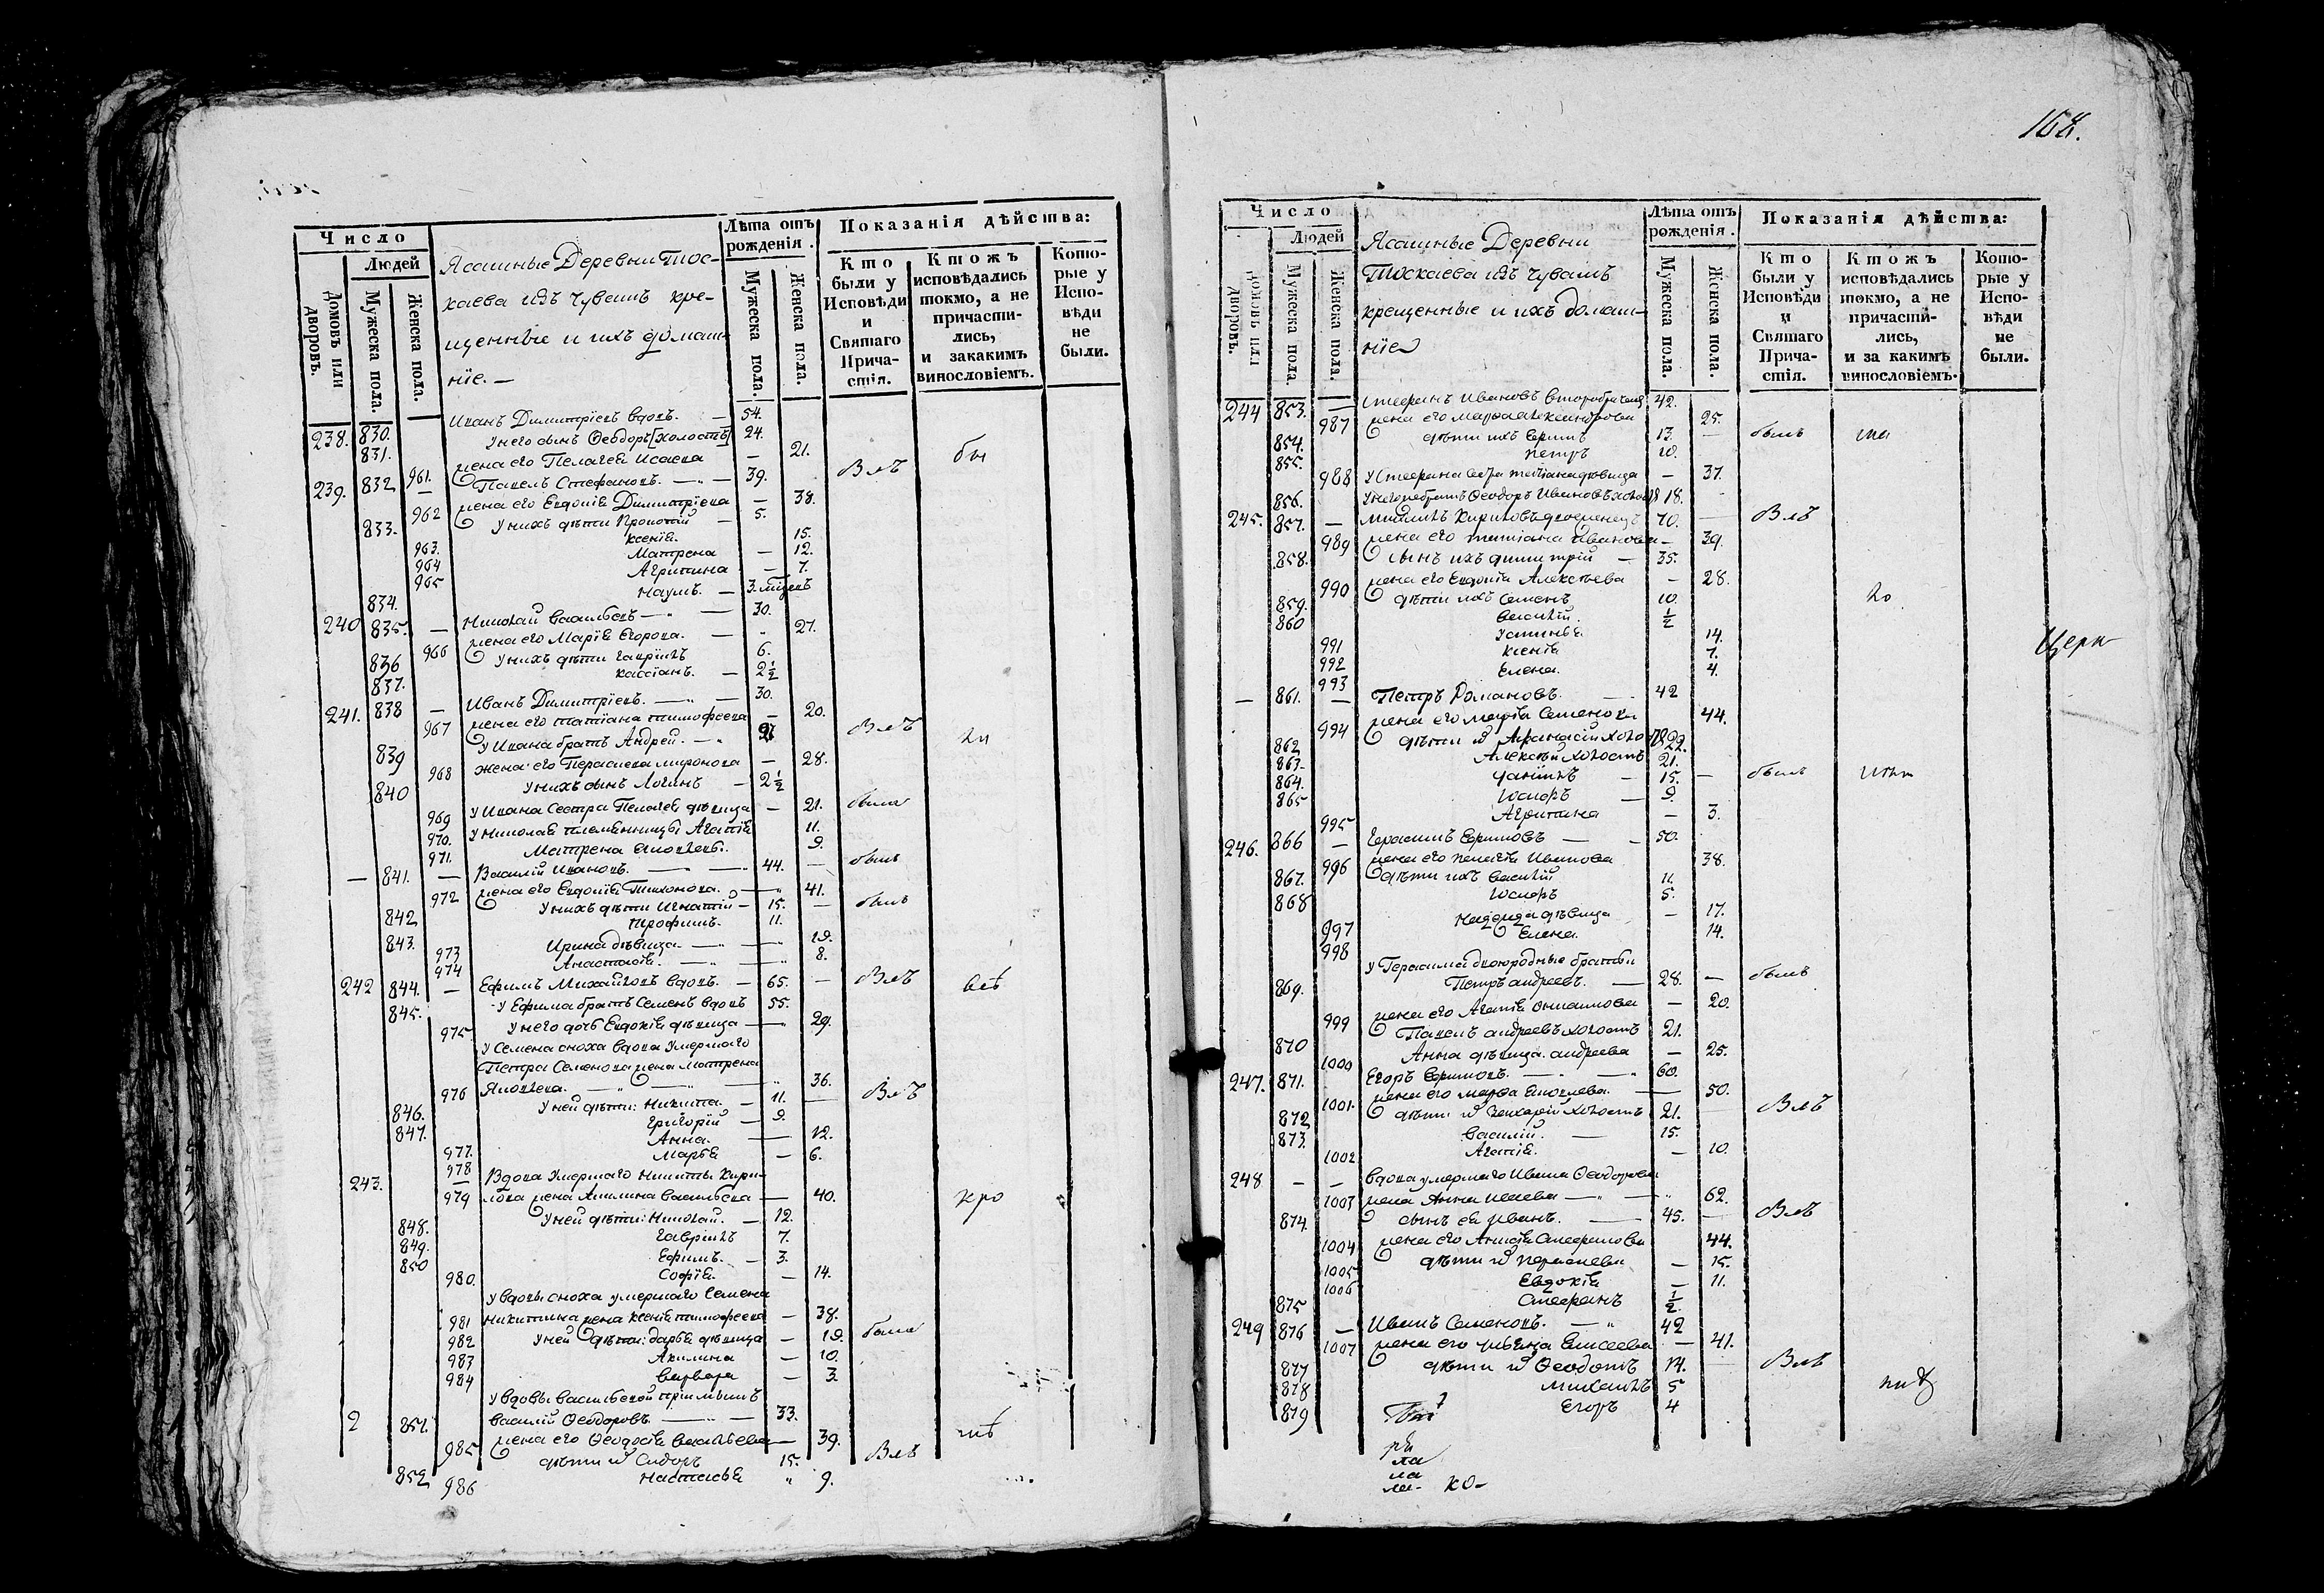 168.
Число
Людей
Домовъ или дворовъ.
Мужеска пола.
Женска пола.
Ясашные Деревни Тос-
каева изъ Чувашъ кре-
щенные и ихъ домаш-
нїе. —
Лѣта отъ рожденія.
Мужеска пола.
Женска пола.
Показанія дѣйства:
Кто были у Исповѣди и Святаго Прича-стія.
Ктожъ исповѣдались токмо, а не причасти-лись, и закакимъ винословіемъ.
Кото-рые у Испо-вѣди не были.
238. 830. Иванъ Димитрїевъ вдовъ. — 54.
831. У него сынъ Ѳеодоръ [холостъ] 24.
961. жена его Пелагея Исаева — 21.
239. 832 — Павелъ Стефановъ. — 39. Влъ бы
962 жена его Евдокїя Димитрїева — 38.
833. У нихъ дѣти Прокопїй — 5.
963. Ксенїя. 15.
964 Матрена — 12.
965 Агрипина — 7.
834. Наумъ. — 3. мѣсецъ
240 835. — Николай Васильевъ — 30.
966 жена его Марїя Егорова. — 27.
836 У нихъ дѣти Гаврїилъ 6.
837. Кассїанъ. — 2 ½
241. 838 — Иванъ Димитрїевъ. — 30.
967 жена его Татїана Тимофеева — 20. Влъ
839 У Ивана братъ Андрей. —
968 жена его Параскева Миронова — 28.
840 У нихъ сынъ Логинъ — 2 ½
969 У Ивана Сестра Пелагея дѣвица — 21. была
970. У Николая племянницы Агапїя 11.
971. Матрена Яковлевы. 9.
— 841. — Василїй Ивановъ. — 44. — былъ
972 жена его Евдокїя Тихонова. — 41.
842 У нихъ дѣти Игнатїй — 15. — былъ
843. Трофимъ. 11.
973 Ирина дѣвица — 19.
974 Анастасїя. — 8.
242 844. — Ефимъ Михайловъ вдовъ. — 65. — Влъ
845. У Ефима братъ Семенъ вдовъ 55.
975. У него дочь Евдокїя дѣвица — 29.
У Семена сноха вдова Умершаго
Петра Семенова жена Матрена
976 Яковлева. — 36.
846. У ней дѣти: Никита. — 11. — Влъ
847. Григорїй — 9.
977. Анна. — 12.
978 Марья — 6.
243. — Вдова Умершаго Никиты Кири-
979 лова жена Акилина Васильева — 40. кро
848. У ней дѣти: Николай. — 12.
849. Гаврїилъ 7.
850 Ефимъ. — 3.
980. Софїя. — 14.
У вдовы сноха умершаго Семена
981 Никитина жена Ксенїя Тимофеева — 38.
982 У ней дѣти: Дарья дѣвица — 19. была
983 Акилина — 10.
984 Варвара — 3.
У вдовы Васильевой прїимышъ
2 851. Василїй Ѳеодоровъ. — 33.
985 жена его Ѳеодосїя Васильева — 39.
852 дѣти Сидоръ 15. Влъ
986 Настасья " 9.
Число
Людей
Домовъ или дворовъ.
Мужеска пола.
Женска пола.
Ясашные Деревни
Тоскаева изъ Чувашъ
крещенные и ихъ домаш-
нїе
Лѣта отъ рожденія.
Мужеска пола.
Женска пола.
Показанія дѣйства:
Кто были у Исповѣди и Святаго Прича-стія.
Ктожъ исповѣдались токмо, а не причасти-лись, и за какимъ винословіемъ.
Кото-рые у Испо-вѣди не были.
244 853. — Стефанъ Ивановъ 42.
987 жена его Марѳа Александрова 25.
854. дѣти ихъ Ефимъ 13. — былъ
855. Петръ 10.
988 У Стефана Сестра Татїана дѣвица — 37.
856. У него же братъ Ѳеодоръ Ивановъ 18.
245. 857. — Михаилъ Кириловъ 70. — Влъ
989 жена его Татїана Иванова — 39.
858. Сынъ ихъ Димитрїй — 35.
990 жена его Евдокїя Алексѣева — 28.
859. дѣти ихъ Семенъ 10.
860 Василїй. ½
991 Устинья. 14.
992 Ксенїя 7.
993 Елена. 4.
Церк
— 861. — Петръ Романовъ. 42
994 жена его Марїя Семенова 44.
862 дѣти Афанасїй 22.
863. Алексѣй холостъ 21.
864. Данїилъ — 15. — былъ
865 Іосифъ — 9.
995 Агрипина — 3.
246. 866 — Герасимъ Ефимовъ — 50.
996 жена его Пелагїя Иванова 38.
867. дѣти ихъ Василїй 11.
868 Іосифъ 5.
997 Надежда дѣвица — 17.
998 Елена. 14.
У Герасима двоюродные братья
869. Петръ Андреевъ. — 28. — былъ
999 жена его Агапїя — 20.
870 Павелъ Андреевъ холостъ 21.
1000 Анна дѣвица Андреева — 25.
247. 871. Егоръ Ефимовъ. — 60.
1001. жена его Марѳа Яковлева. — 50.
872 дѣти Захарїй холостъ 21. — Влъ
873. Василїй. — 15.
1002 Агапїя. — 10.
248 — — Вдова умершаго Ивана Ѳеодорова
1003 жена Анна Исаева — 62.
874. Сынъ ея Иванъ. — 45. — Влъ
1004 жена его Анисїя Стефанова 44.
1005 дѣти Параскева — 15.
1006 Евдокїя — 11.
875 Стефанъ ½
249 876 — Иванъ Семеновъ. — 42
1007 жена его Ульяна Елисеева — 41.
877 дѣти Ѳеодотъ 14. — Влъ
878 Михаилъ 5
879 Егоръ 4
ко-